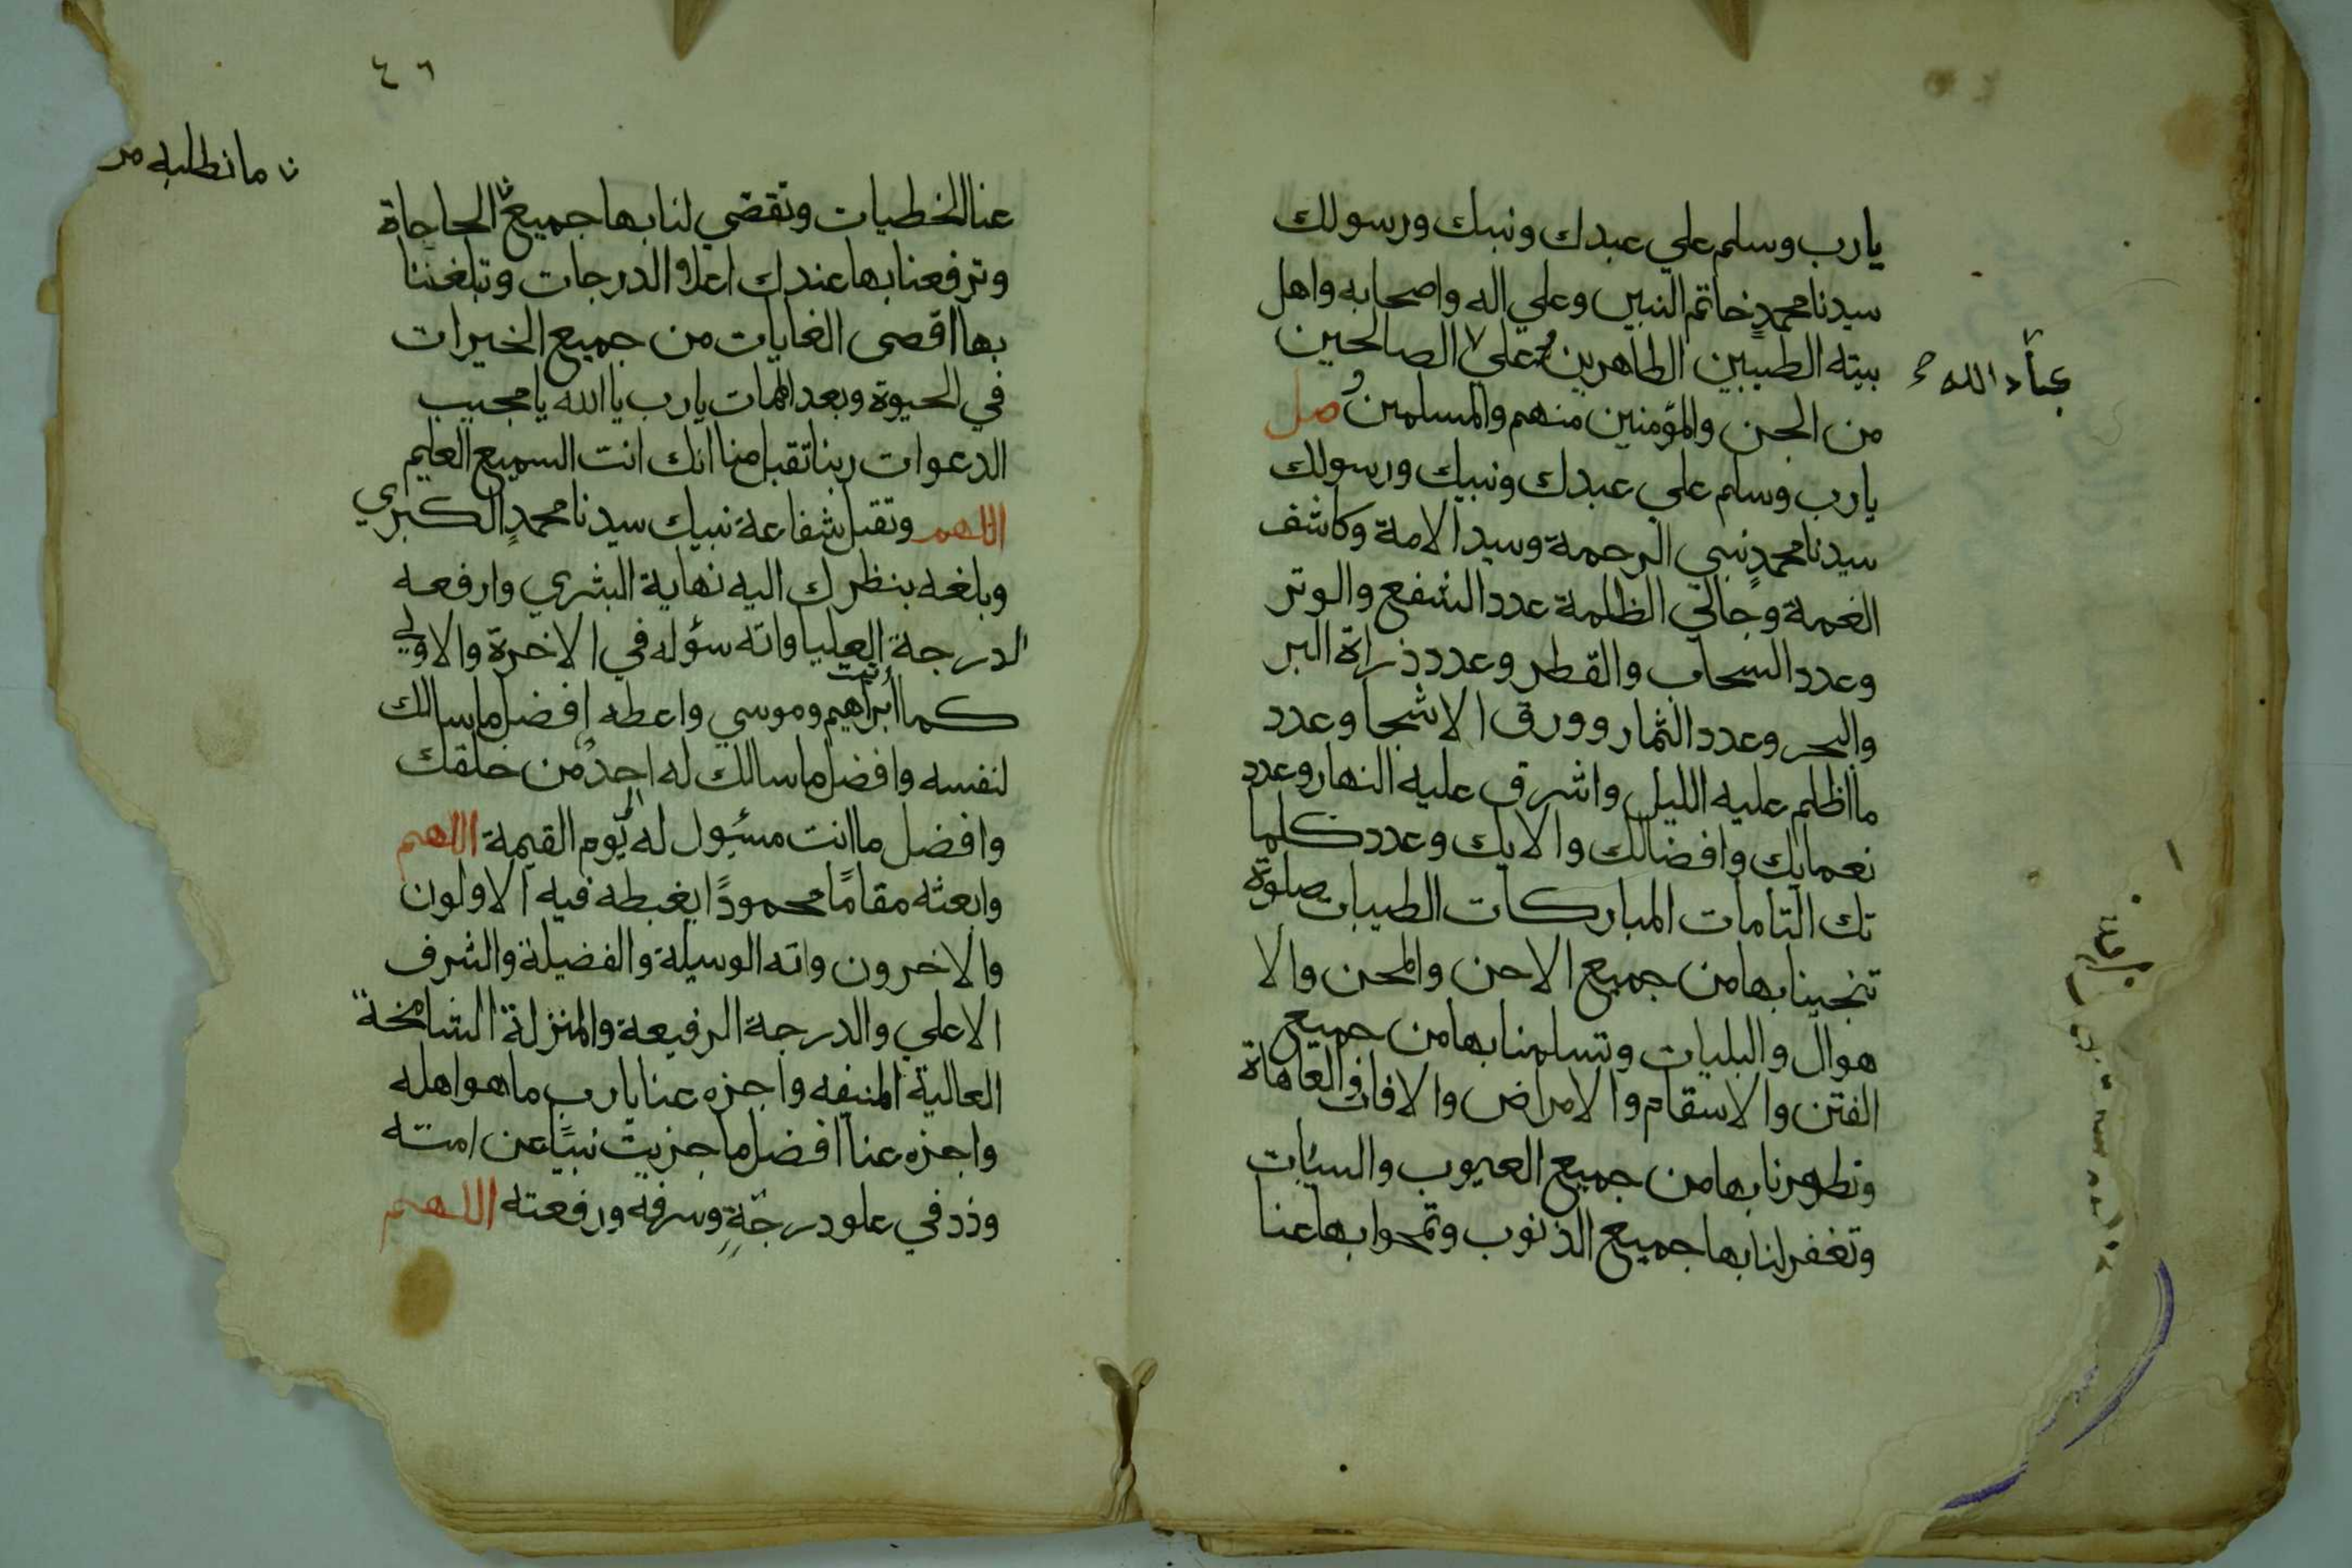 يارب وسلم علي عبدك ونبيك ورسولك
سيدنا محمدٍ خاتم النبين وعلي اله واصحابه واهل
بيته الطيبين الطاهرين وعلي الصالحين
عباد الله
من الجن والمؤمنين منهم والمسلمين وصل
يارب وسلم علي عبدك ونبيك ورسولك
سيدنا محمدٍ نبي الرحمة وسيد الامة وكاشف
الغمة وجالي الظلمة عدد الشفع والوتر
وعدد السحاب والقطر وعدد ذراة البر
والبحر وعدد الثمار وورق الاشجا وعدد
ما اظلم عليه الليل واشرق عليه النهار وعدد
نعمايك وافضالك والايك وعدد كلما
تك التامات المباركات الطيبات صلوة
تنجينا بها من جميع الاحن والمحن والا
هوال والبليات وتسلمنا بها من جميع
الفتن والاسقام والامراض والافات والعاهاة
وتطهرنا بها من جميع العيوب والسيئات
وتغفر لنا بها جميع الذنوب وتمحوا بها عنا
٤٦
ما نطلبه من
عنا الخطيات وتقضي لنا بها جميع الحاجاة
وترفعنا بها عندك اعلا الدرجات وتبلغننا
بها اقصى الغايات من جميع الخيرات
في الحيوة وبعد الممات يارب يا الله يا مجيب
الدعوات ربنا تقبل منا انك انت السميع العليم
اللهم وتقبل شفاعة نبيك سيدنا محمدٍ الكبري
وبلغه بنظرك اليه نهاية البشري وارفعه
الدرجة العليا واته سؤله في الاخرة والاولي
كما أتيت ابراهيم وموسي واعطه افضل ما سالك
لنفسه وافضل ما سالك له احدٌ من خلقك
وافضل ما انت مسئول له الي يوم القيمة اللهم
وابعثه مقامًا محمودًا يغبطه فيه الاولون
والاخرون واته الوسيلة والفضيلة والشرف
الاعلي والدرجة الرفيعة والمنزلة الشامخة
العالية المنيفه واجزه عنا يارب ما هو اهله
واجزه عنا افضل ما جزيت نبيًا عن امته
وزد في علو درجةٍ وسرفه ورفعته اللهم